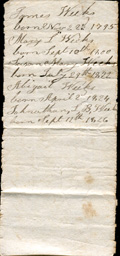 James Weeks
born Nov 2d 1795
Mary L Weeks
born Sept 10th 1800
Weeks
born July 29th 1822
Abigail Weeks
born April 2d 1824
Johnathan L B Weeks
born Sept 17th 1826